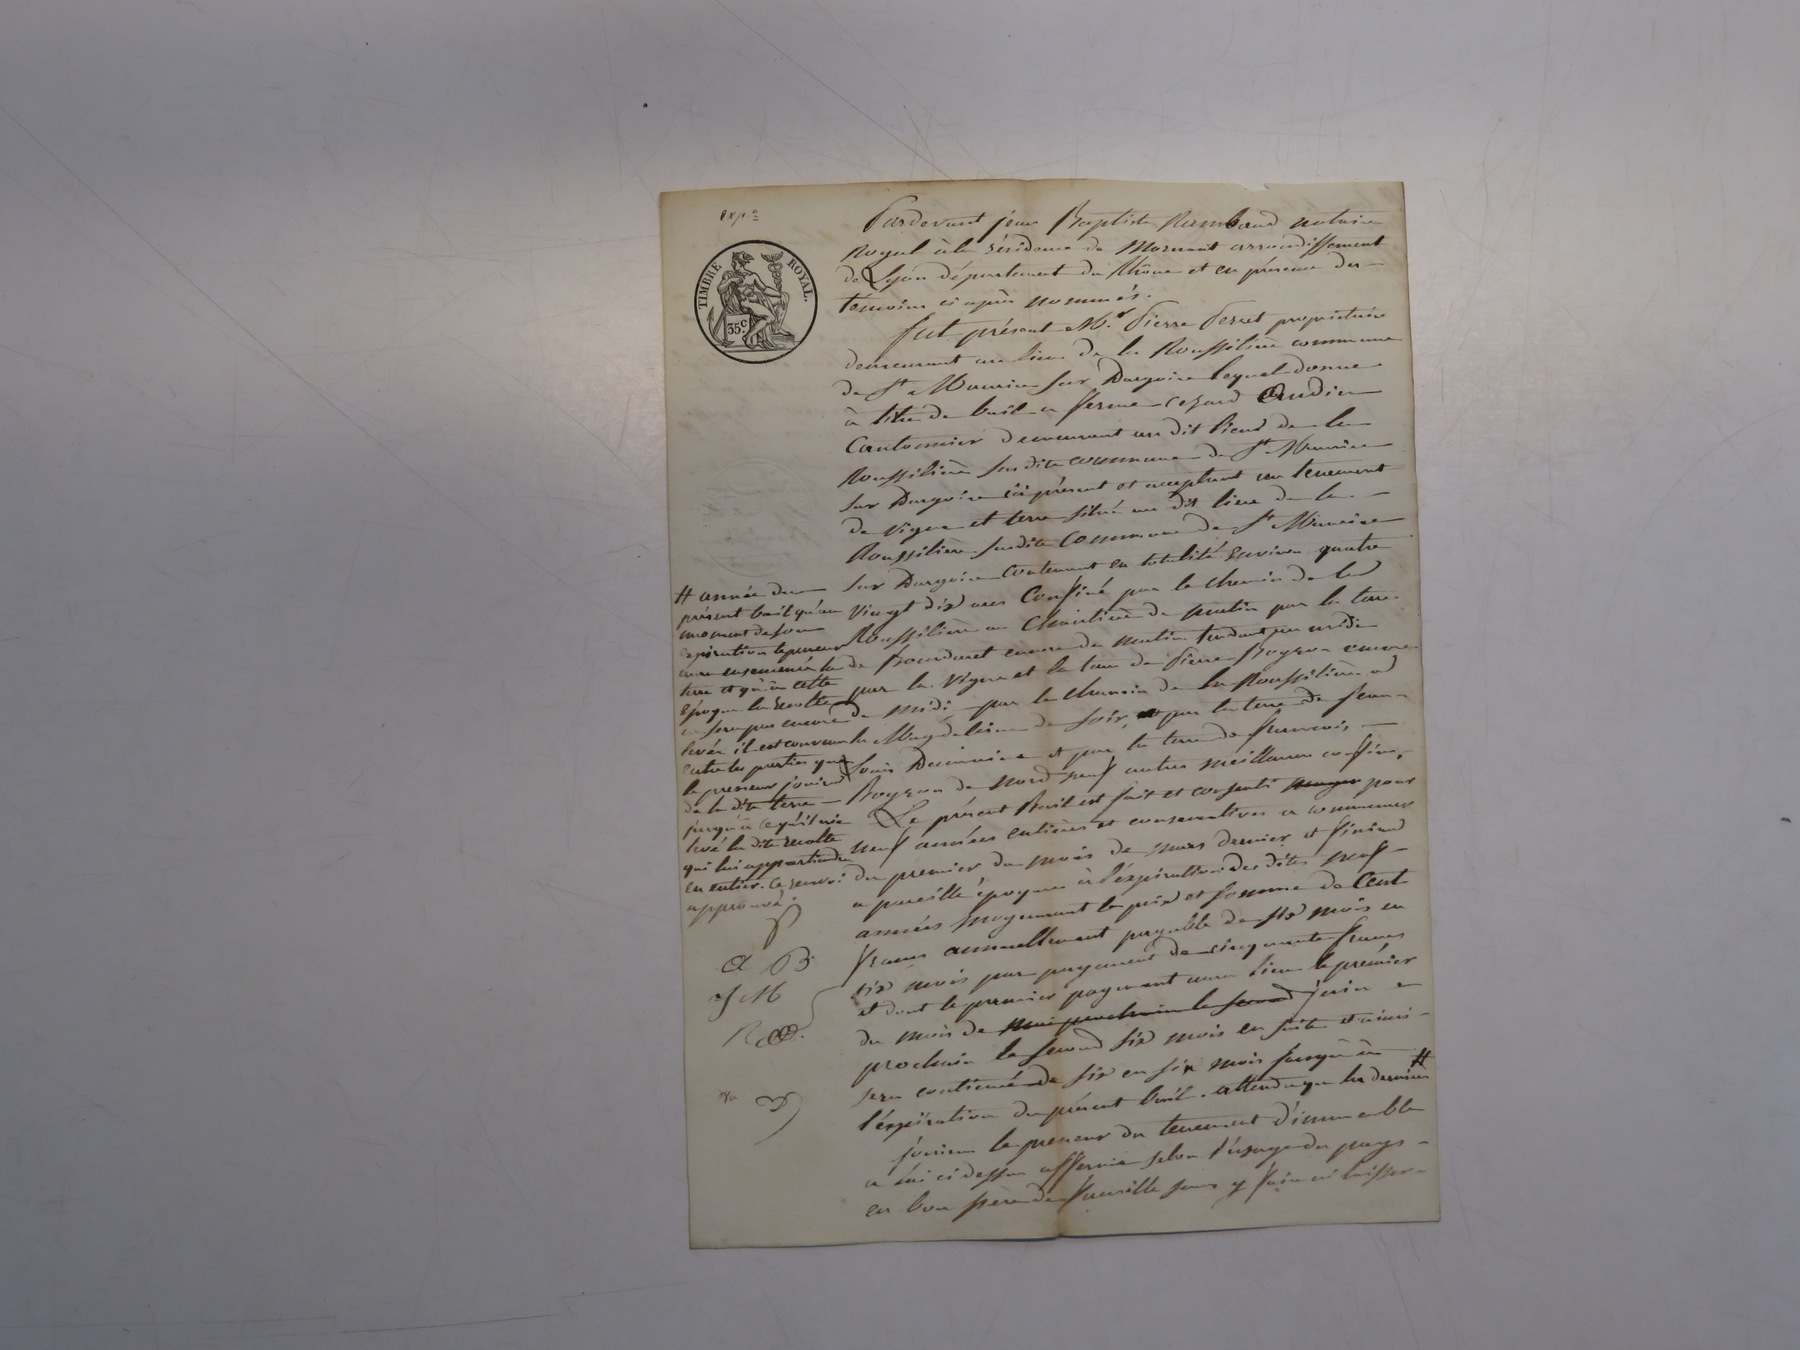 exp.e
TIMBRE ROYAL.
35c.
Pardevant jean Baptiste Rambaud notaire
Royal à la résidence de Mornant arrondissement
de Lyon département du Rhône et en présence des
temoins ci après nommés.
fut présent Mr. Pierre Perret propriétaire
demeurant au lieu de la Roussilière commune
de St Maurice sur Dargoire lequel donne
à titre de bail a ferme a
Cantonnier demeurant au dit lieu de la
Roussilière susdite commune de St Maurice
sur Dargoire ici présent et acceptant un tenement
de vigne et terre situé au dit lieu de la
Roussilière susdite commune de St Maurice
sur Dargoire contenant en totalité environ quatre
vingt dix ares Confiné par le chemin de la
Roussilière au de matin par la terre
de encore de matin tendant au midi
par la vigne et la terre de Pierre Boyron encore
de midi par le chemin de la Roussilière a
la Magdeleine de soir, par la terre de jean
Louis et par la terre de francois
Boyron de nord sauf autres meilleurs confins,
Le présent Bail est fait et consenti pour
neuf années entières et consecutives a commencer
du premier du mois de mars dernier et finiront
a pareille époque à l'expiration des dites neuf
années moyennant le prix et somme de Cent
francs annuellement payable de six mois en
six mois par payement de cinquante francs
et dont le premier payement aura lieu le premier
du mois de mai prochain le second juin
prochain le second six mois en suite et ainsi
sera continué de six en six mois jusqu'à
l'éxpiration du présent bail. attendu que la dernière #
jouira le preneur du tenement d'immeuble
a lui ci dessus affermé selon l'usage du pays
en bon père de famille sans y faire ni laisser
# année du
présent bail qu'au
moment de son
expiration le preneur
aura ensemencé la
terre et qu'à cette
époque la recolte
ne sera pas encore
levée il est convenu
entre les parties que
le preneur jouira
de la dite terre
jusqu'à ce qu'il aie
levé la dite recolte
qui lui appartiendra
en entier. Ce renvoi
approuvé.
P
A B
J M